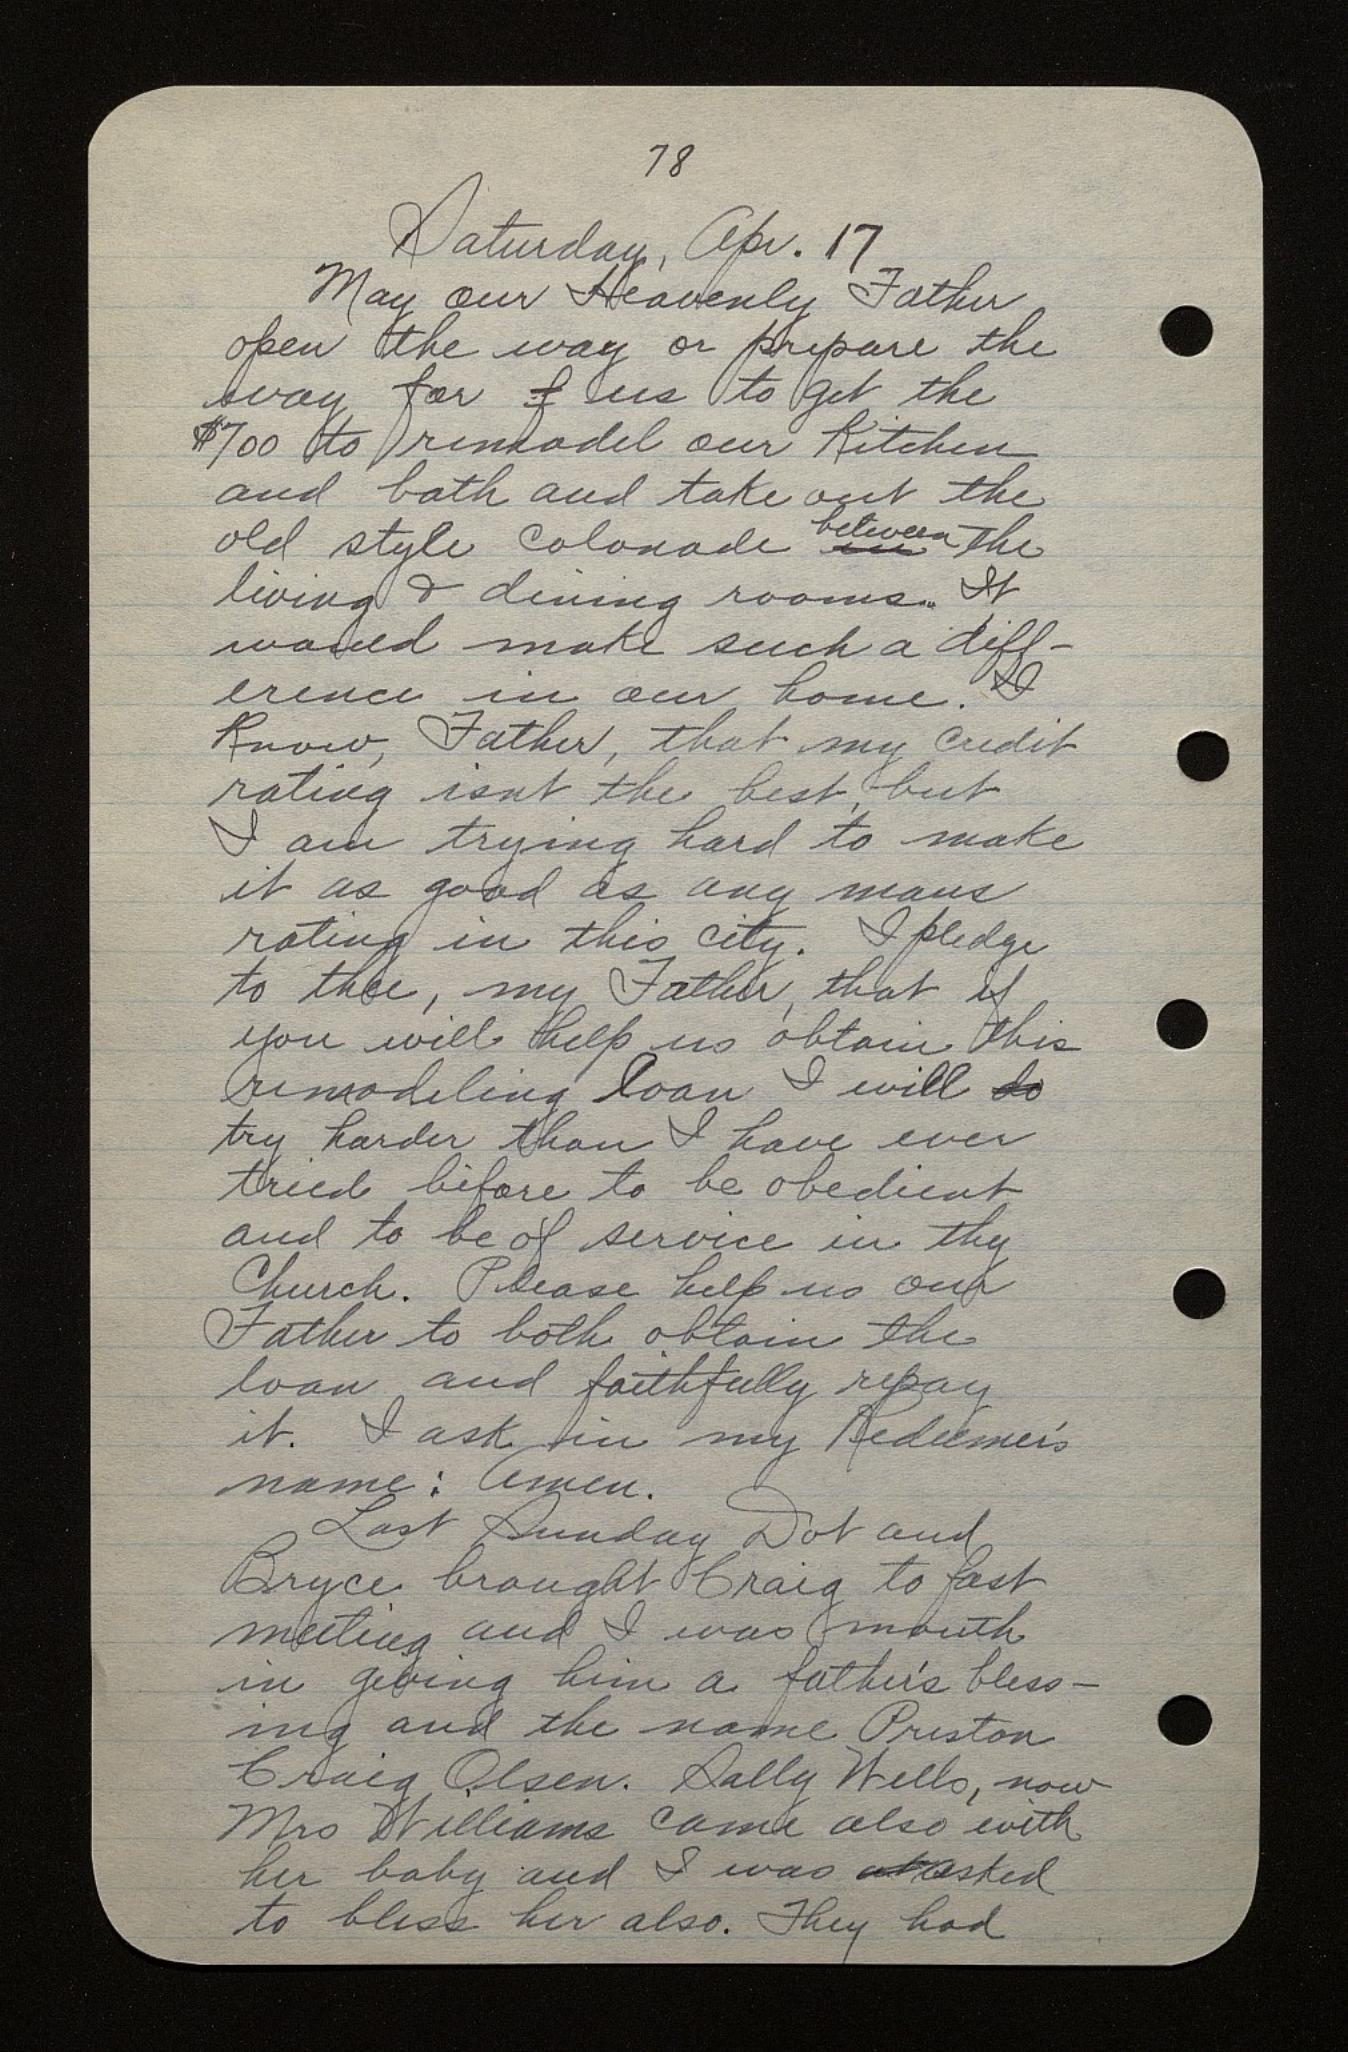 78
Saturday, Apr. 17
May our Heavenly Father
open the way or prepare the
way for f us to get the
$700 to remodel our Kitchen
and bath and take out the
old style colonade in between the
living & dining rooms. It
would make such a diff-
erence in our home. I
Know, Father, that my credit
rating isnt the best, but
I am trying hard to make
it as good as any mans
rating in this city. I pledge
to thee, my Father, that if
you will help us obtain this
remodeling loan I will do
try harder than I have ever
tried before to be obedient
and to be of service in thy
Church. Please help us our
Father to both obtain the
loan and faithfully repay
it. I ask in my Redeemer's
name: Amen.
Last Sunday Dot and
Bryce brought Craig to fast
meeting and I was mouth
in geving him a father's bless-
ing and the name Preston
Craig Olsen. Sally Wells, now
Mrs Williams came also with
her baby and I was asked
to bless her also. They had